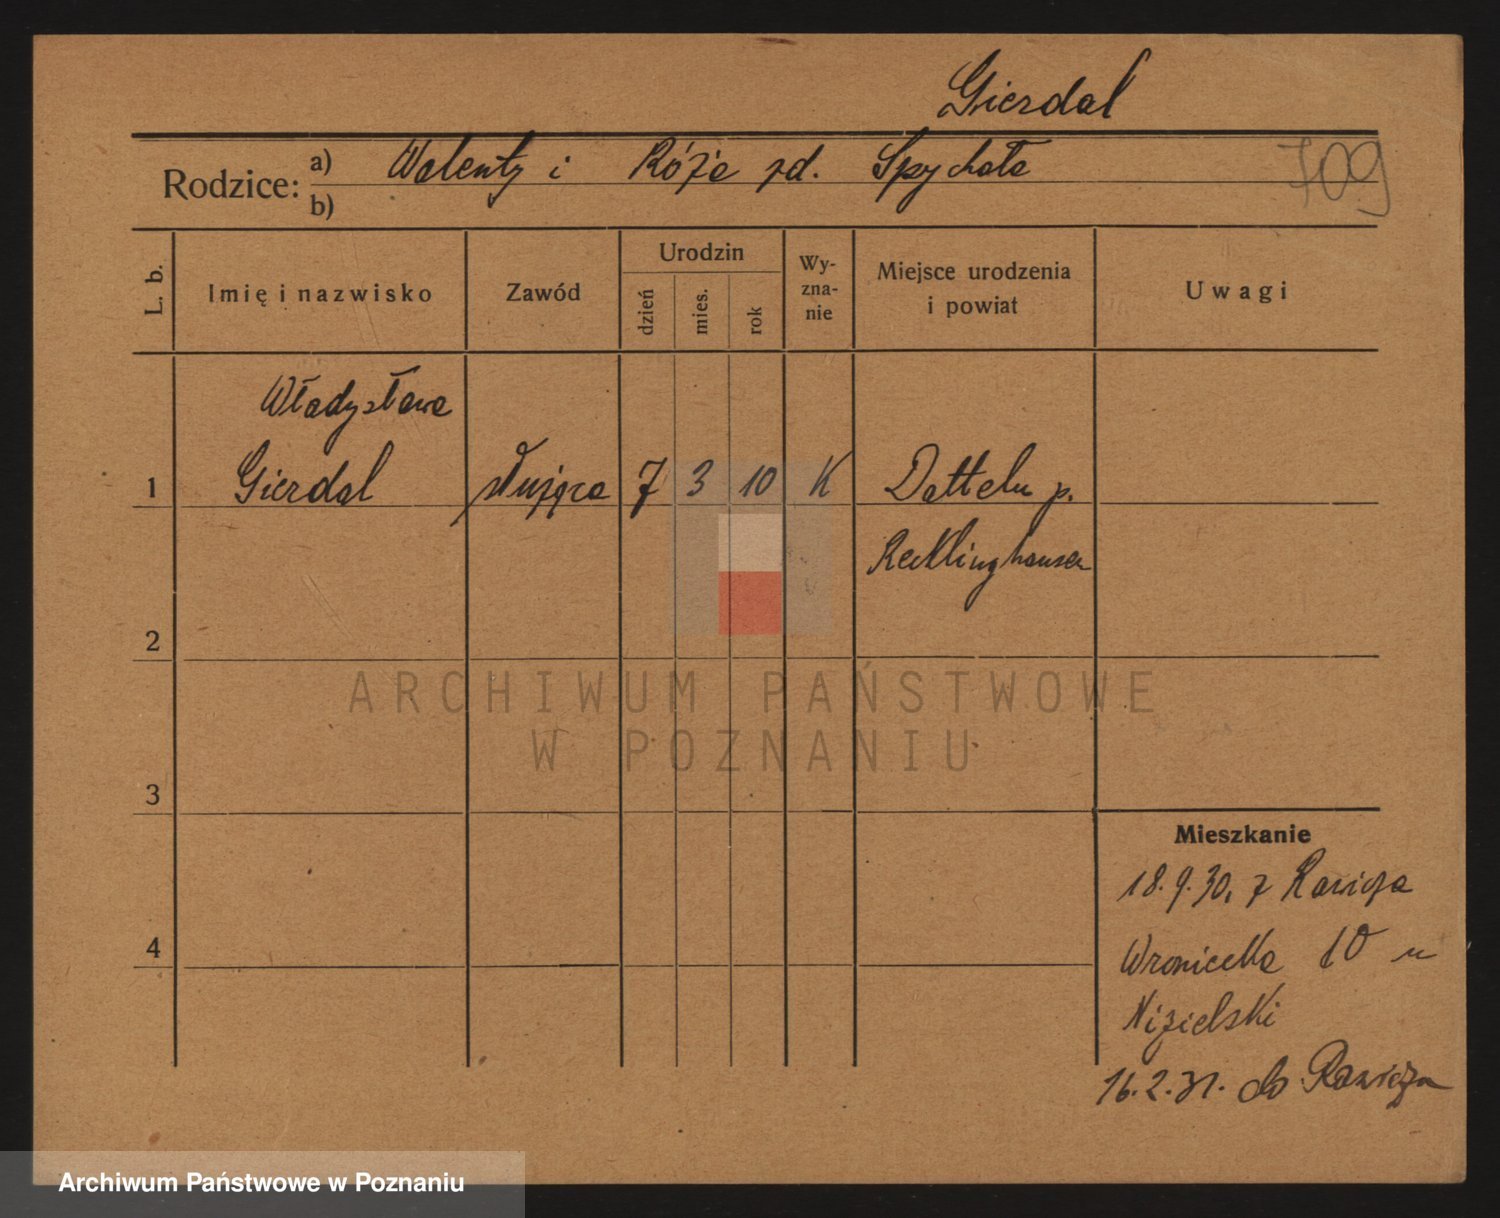 Gierdal
Rodzice: a) Walenty i Róża zd. Spychała
b)
709
L. b. Imię i nazwisko Zawód Urodzin dzień mies. rok Wy-zna-nie Miejsce urodzenia i powiat Uwagi
Władysława
1 Gierdal służąca 7 3 10 K Datteln p.
Recklinghausen
2
ARCHIWUM PAŃSTWOWE
W POZNANIU
3
Mieszkanie
18.9.30, z Rawicza
4
Wroniecka 10 u
Nizielski
16.2.31. do Rawicza
Archiwum Państwowe w Poznaniu